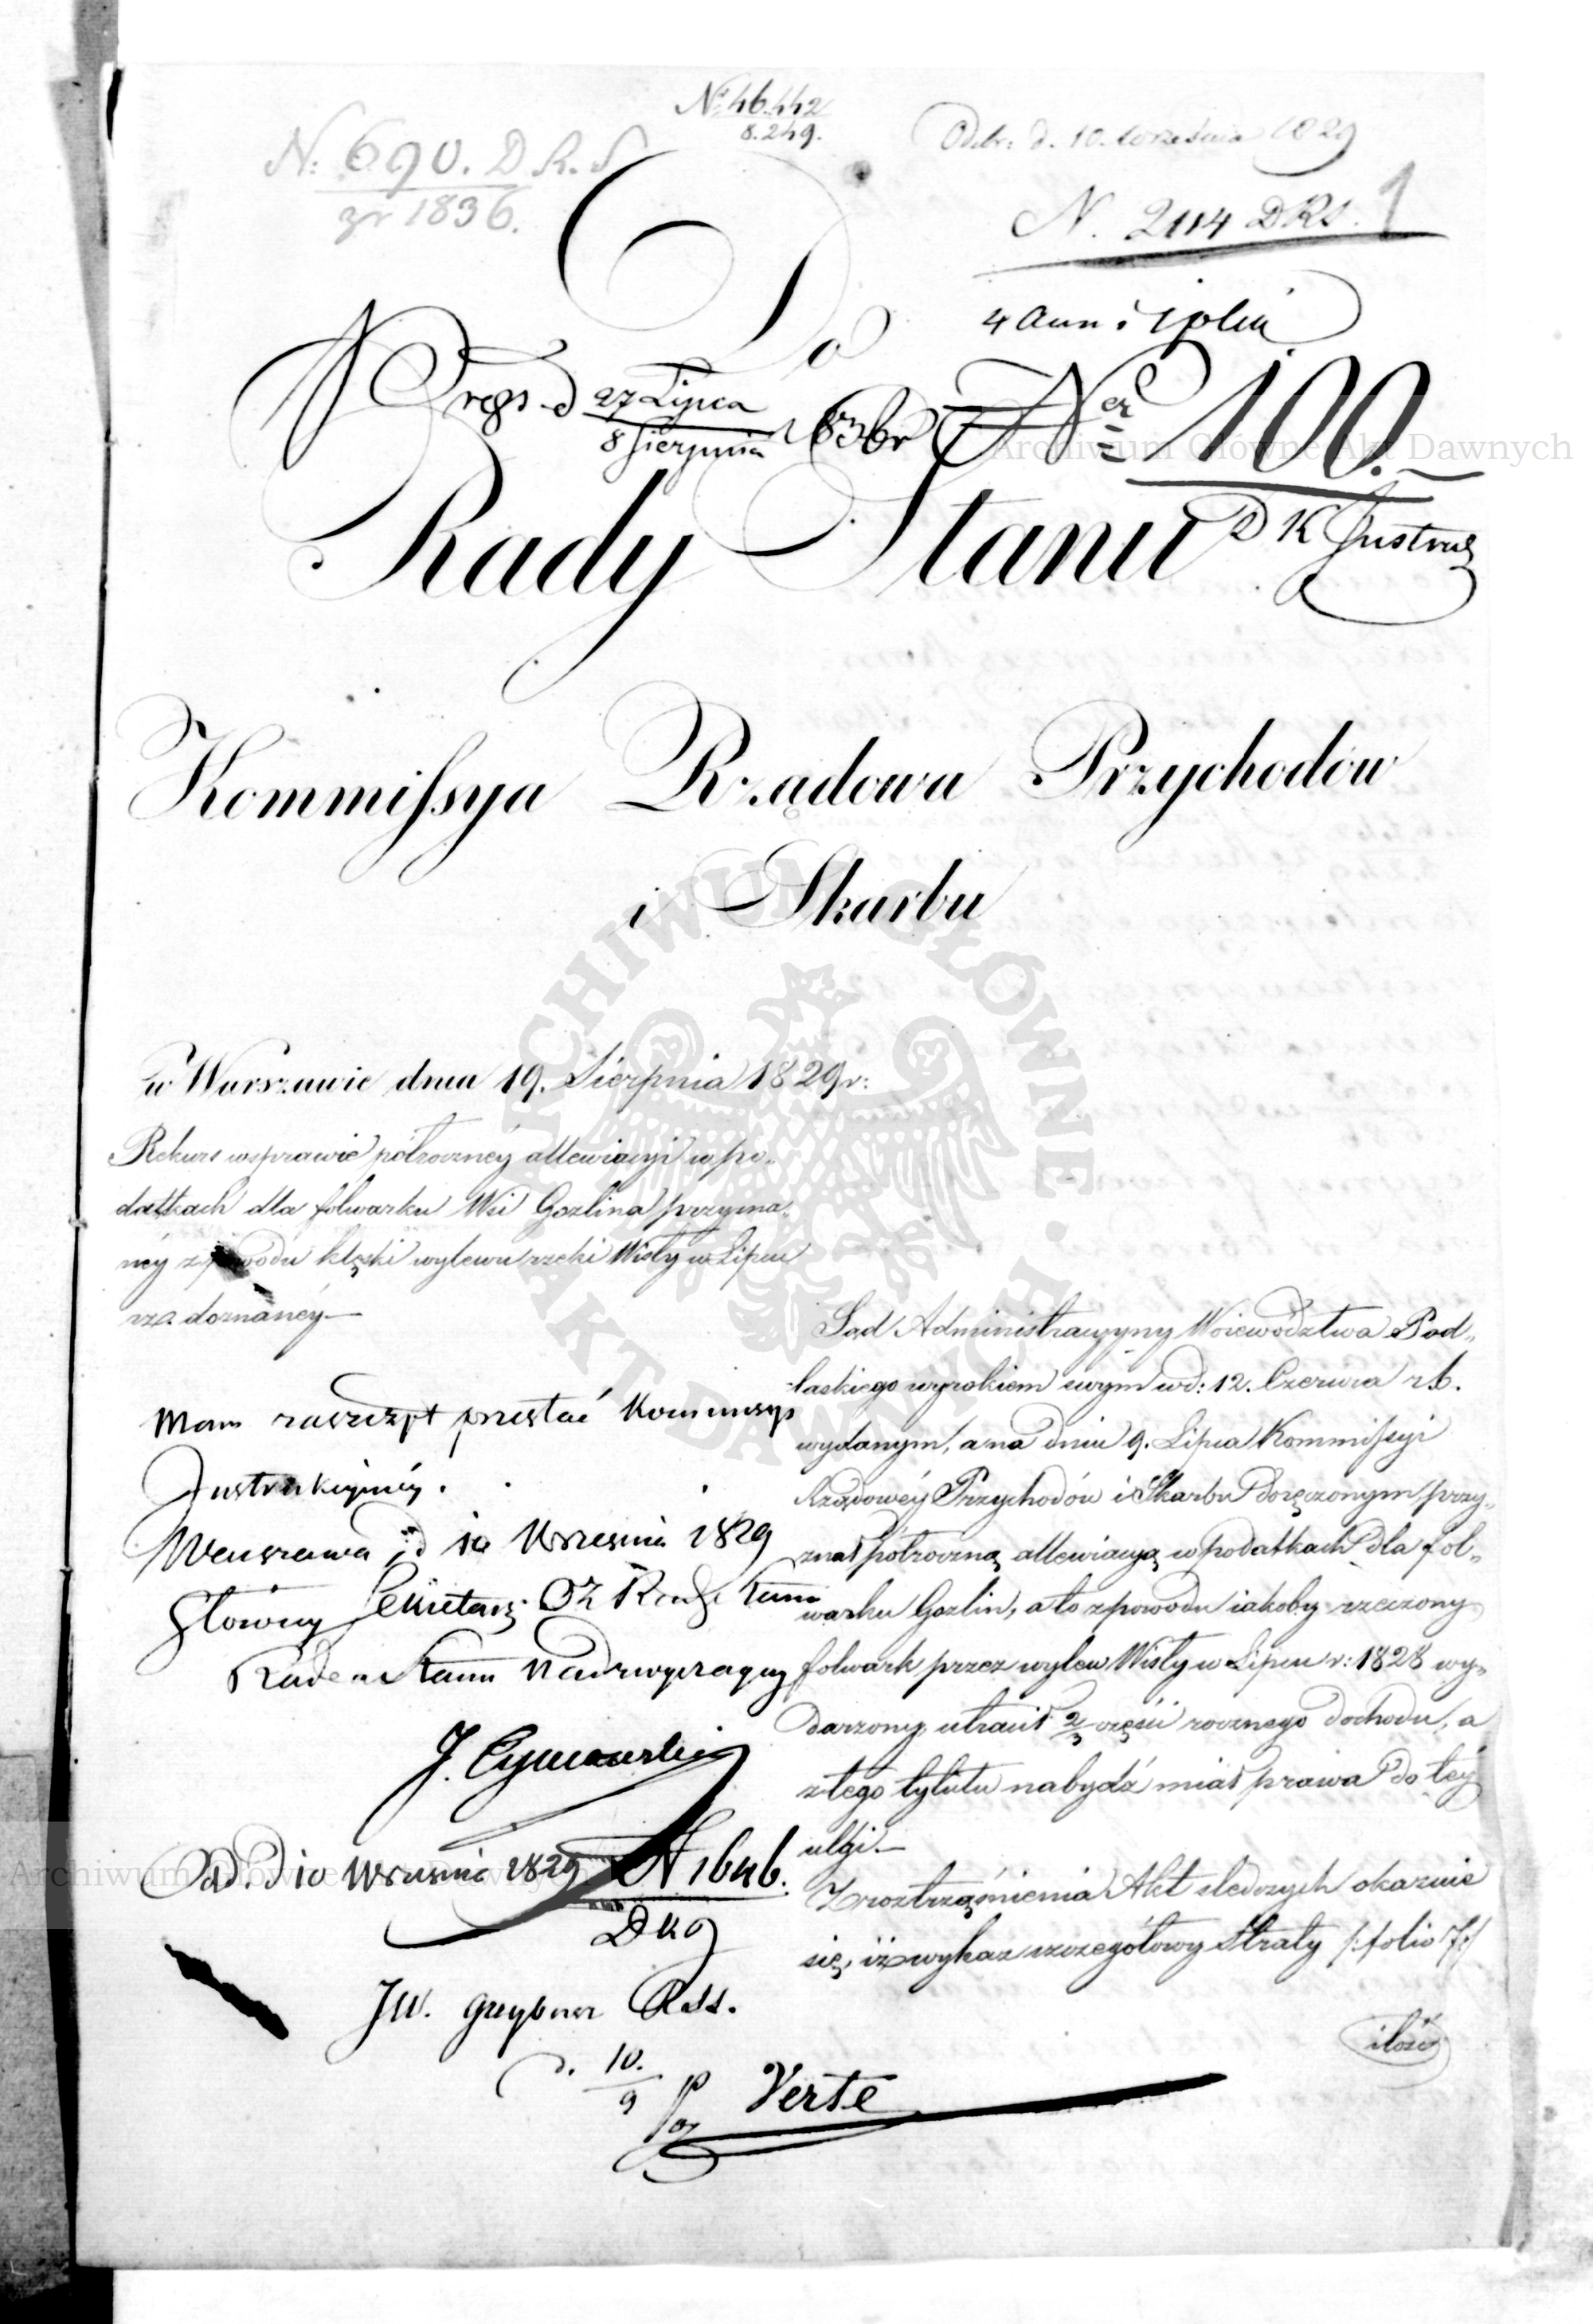 Nº 46.442
8.249.
N: 690. D R. S
zr 1836.
Odebr: d. 10. Września 1829
N. 2114 DRS. 1
4 Ann:
Do
Pregs. d 27 Lipca
8 Sierpnia 1836r
Ner 100.
Rady Stanu
D K Instruk
Kommissya Rządowa Przychodów
i Skarbu
w Warszawie dnia 19. Sierpnia 1829 r:
Rekurs wsprawie półroczney allewiacyi w po„
datkach dla folwarku Wsi Gozlina przyzna„
ney z powodu klęski wylewu rzeki Wisły w Lipcu
doznaney.—
Mam zaszczyt przesłać Kommissyi
Instrukcyiney.
Warszawa d 10 Września 1829
Główny Sekretarz
Radca Stanu Nadzwyczayny
Od. d 10 Września 1829 N 1646.
JW. Greybner RSS.
d. 10.
9
Sąd Administracyyny Woiewództwa Pod„
laskiego wyrokiem swym wd: 12. Czerwca r.b.
wydanym, a na dniu 9. Lipca Kommissyi
Rządowéy Przychodów i Skarbu doręczonym przy„
znał półroczną allewiacyą w podatkach dla fol„
warku Gozlin, a to z powodu iakoby rzeczony
folwark przez wylew Wisły w Lipcu r: 1828 wy„
darzony, utracił 2/3 części rocznego dochodu, a
z tego tytułu nabydź miał prawa do téy
ulgi.—
Z roztrząśnienia Akt śledczych okazuie
się, iż wykaz szczegółowy straty /: folio 7:/
ilość
Verte
Archiwum Główne Akt Dawnych
ARCHIWUM GŁÓWNE AKT DAWNYCH
Archiwum Główne Akt Dawnych